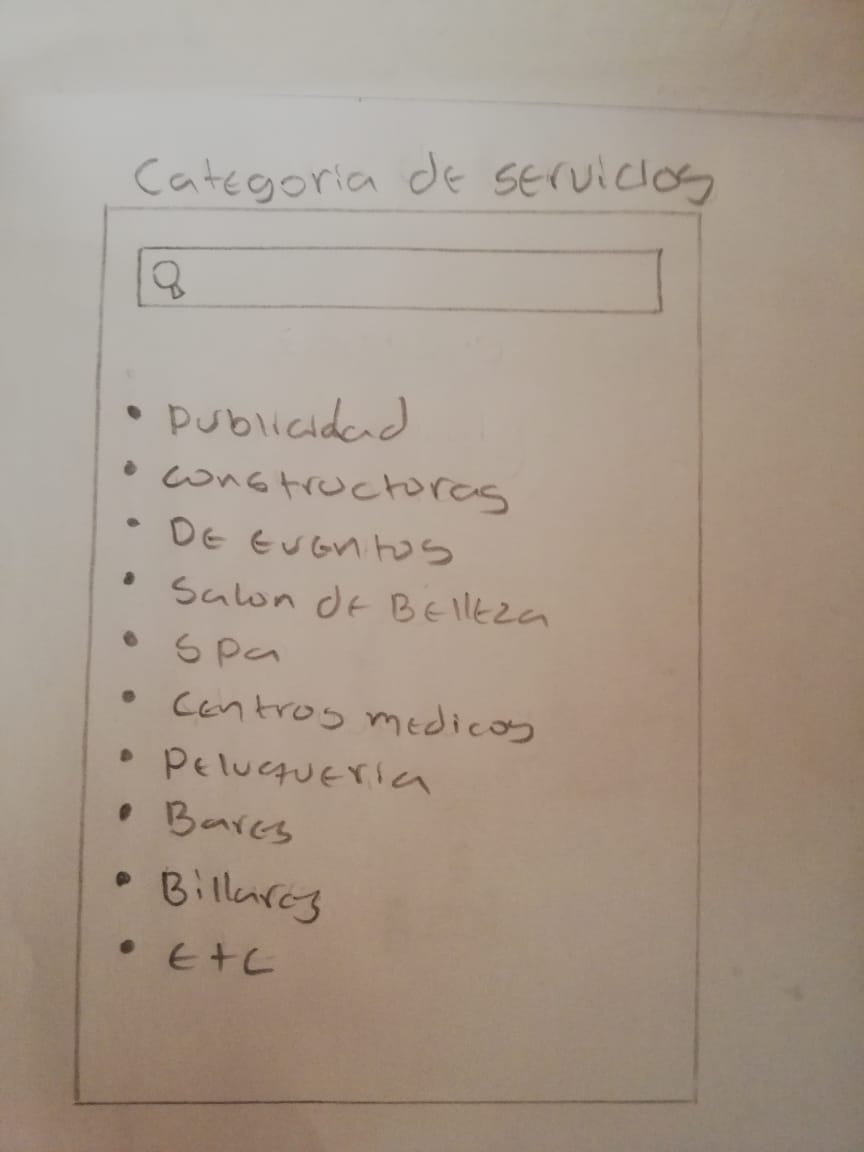 Categoria de servicios
• Publicidad
• constructoras
• DE EVENTOS
• Salon de Belleza
• Spa
• Centros medicos
• Peluqueria
• Bares
• Billares
• Etc